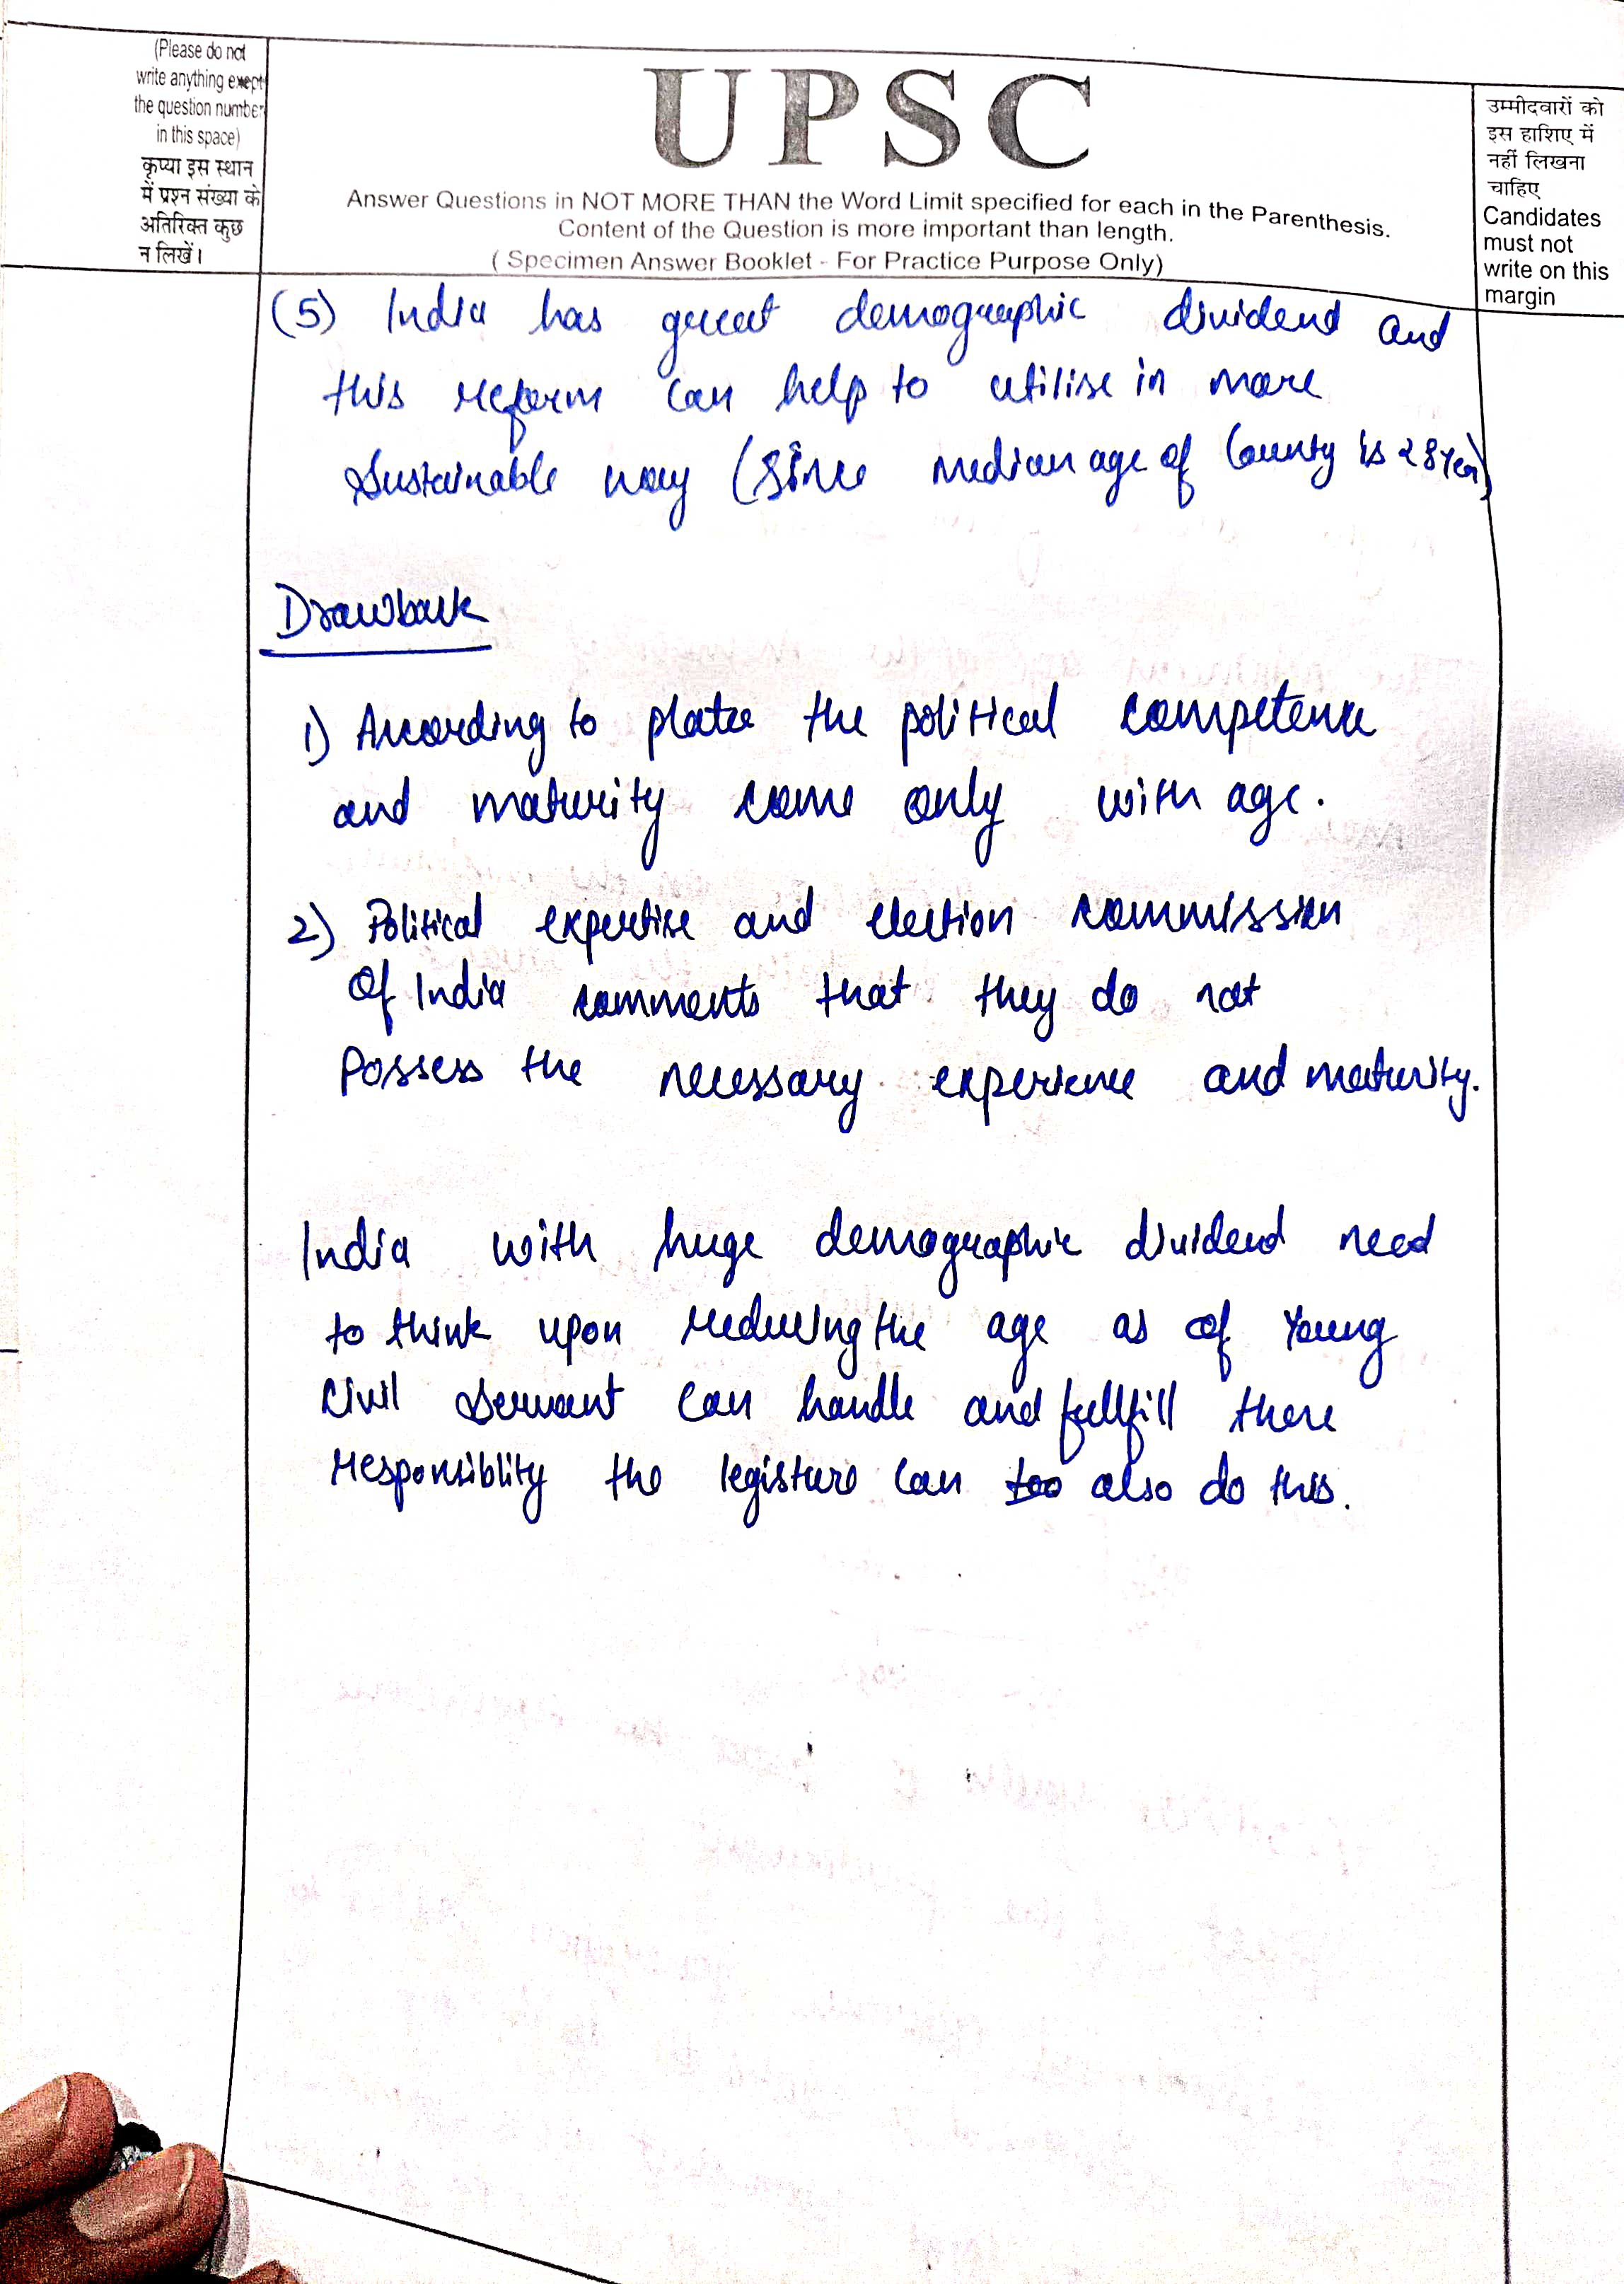 (Please do not
write anything exept
the question number
in this space)
कृप्या इस स्थान
में प्रश्न संख्या के
अतिरिक्त कुछ
न लिखें।
UPSC
Answer Questions in NOT MORE THAN the Word Limit specified for each in the Parenthesis.
Content of the Question is more important than length.
( Specimen Answer Booklet - For Practice Purpose Only)
उम्मीदवारों को
इस हाशिए में
नहीं लिखना
चाहिए
Candidates
must not
write on this
margin
(5) India has great demographic dividend and
this reform can help to utilise in more
sustainable way (since median age of County is 28 year)
Drawback
1) According to plato the political competence
and maturity come only with age.
2) Political expertise and election commission
of India comments that they do not
Possess the necessary experience and maturity.
India with huge demographic dividend need
to think upon reducing the age as of Young
civil servant can handle and fullfill there
responsiblity the legisture can too also do this.